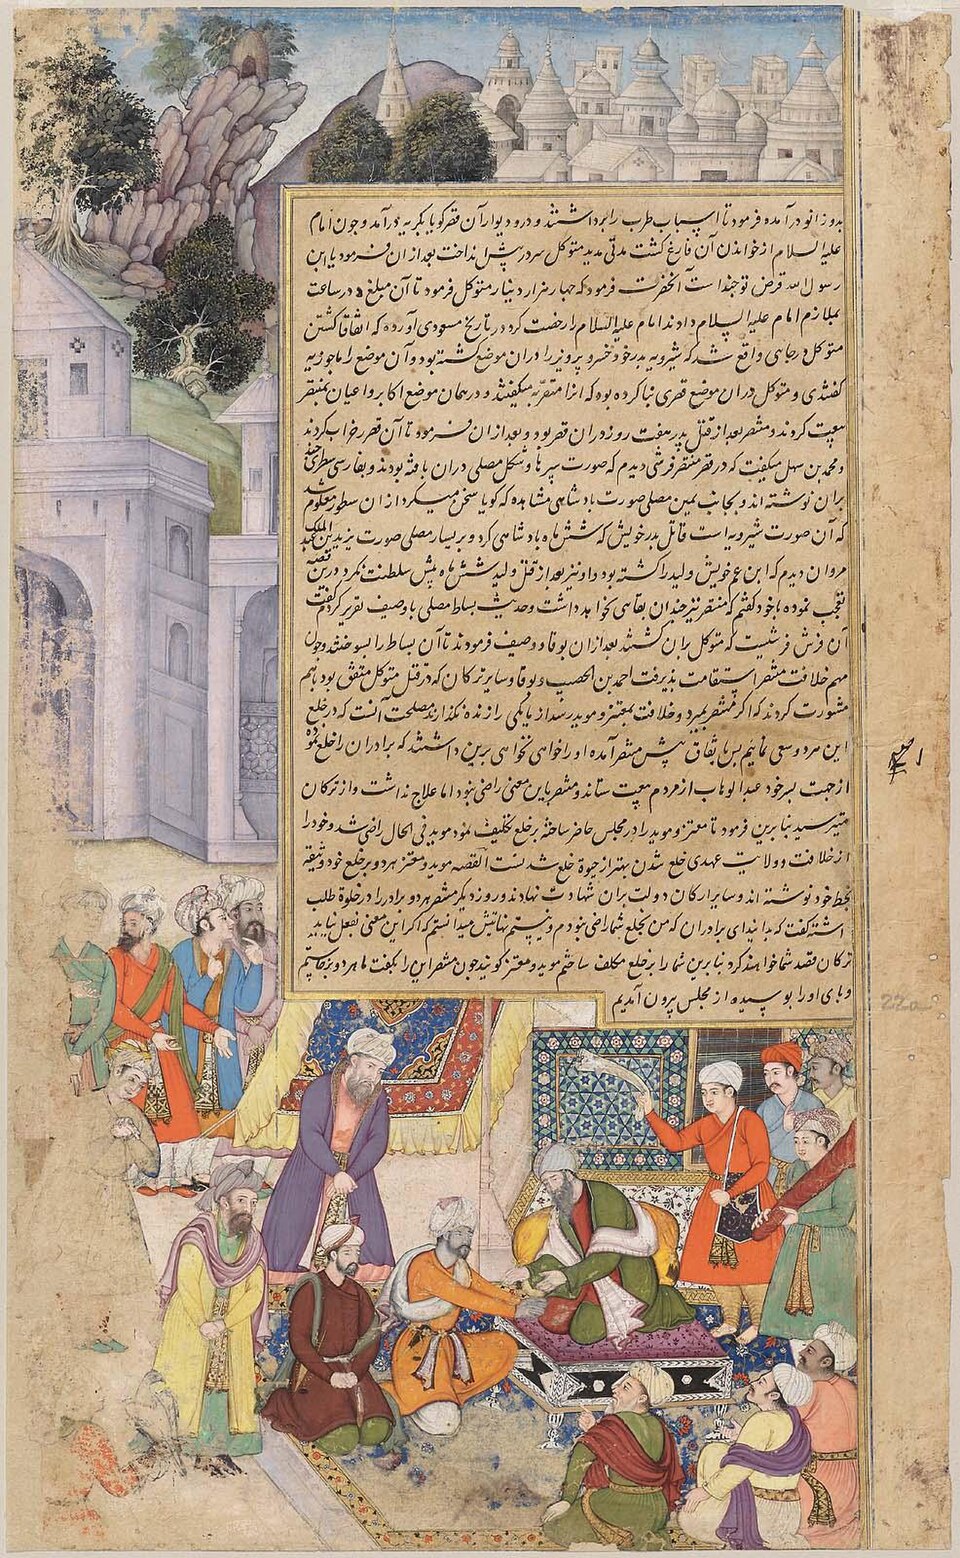 بدو زانو در آمده فرمود تا اسباب طرب را برداشتند و در و دیوار آن قصر گویا بگریه در آمد و چون امام
علیه السلام از خواندن آن فارغ گشت مدتی مدید متوکل سر در پیش انداخت بعد از ان فرمود یا ابن
رسول الله قرض تو چند است آنحضرت فرمود که چهار هزار دینار متوکل فرمود تا آن مبلغ در ساعت
بملازم امام علیه السلام دادند امام علیه السلام را رخصت کرد در تاریخ مسعودی آورده که اتفاقا کشتن
متوکل در جایی واقع شد که شیرویه پدر خود خسرو پرویز را در ان موضع کشته بود و آن موضع را ماحوزیه
گفتندی و متوکل در ان موضع قصری بنا کرده بود که انرا میگفتند و در همان موضع اکابر و اعیان بمنتصر
بیعت کردند و منتصر بعد از قتل پدر هفت روز در ان قصر بود و بعد از ان فرمود تا آن قصر خراب کردند
و محمد بن سهل میگفت که در قصر منتصر فرشی دیدم که صورت و شکل مصلی دران بافته بودند و بفارسی سطری چند
بران نوشته اند و بجانب یمین مصلی صورت پادشاهی مشاهده که گویا سخن میکرد از ان سطور معلوم شد
که آن صورت شیرویه است قاتل پدر خویش که شش ماه پادشاهی کرد و بر یسار مصلی صورت یزید بن عبد الملک
مروان دیدم که ابن عم خویش ولید را کشته بود و او نیز بعد از قتل ولید شش ماه بیش سلطنت نکرد درین قصه
تعجب نموده با خود گفتم که منتصر نیز چندان بقایی نخواهد داشت و حدیث بساط مصلی با وصیف تقریر کردم گفت
آن فرش فرشیست که متوکل بران کشتند بعد از ان بوقا و وصیف فرمودند تا آن بساط را بسوختند و چون
مهم خلافت منتصر استقامت پذیرفت احمد بن الخصیب و بوقا و سایر ترکان که در قتل متوکل متفق بودند باهم
مشورت کردند که اگر منتصر بمیرد و خلافت بمعتز و موید رسد از ما یکی را زنده نگذارند مصلحت آنست که در خلع
این مرد و سعی نمائیم پس باتفاق پیش منتصر آمده او را خواهی نخواهی برین داشتند که برادران را خلع نموده
از جهت پسر خود عبد الوهاب از مردم بیعت ستاند و منتصر باین معنی راضی نبود اما علاج نداشت و از ترکان
میترسید بنابرین فرمود تا معتز و موید را در مجلس حاضر ساخته بر خلع تکلیف نمود موید فی الحال راضی شد و خود را
از خلافت و ولایت عهدی خلع شدن بهتر از حیوة خلع شدنست القصه موید و معتز هر دو بر خلع خود وثیقه
بخط خود نوشته اند و سایر ارکان دولت بران شهادت نهادند و روز دیگر منتصر هر دو برادر را در خلوة طلب
داشته گفت که بدانید ای برادران که من بخلع شما راضی نبودم و نیستم نهایتش میدانستم که اگر این معنی بفعل نیاید
ترکان قصد شما خواهند کرد بنابرین شما را بر خلع مکلف ساختم موید و معتز گویند چون منتصر این را بگفت ما هر دو برخاستیم
و پای او را بوسیده از مجلس بیرون آمدیم
22a